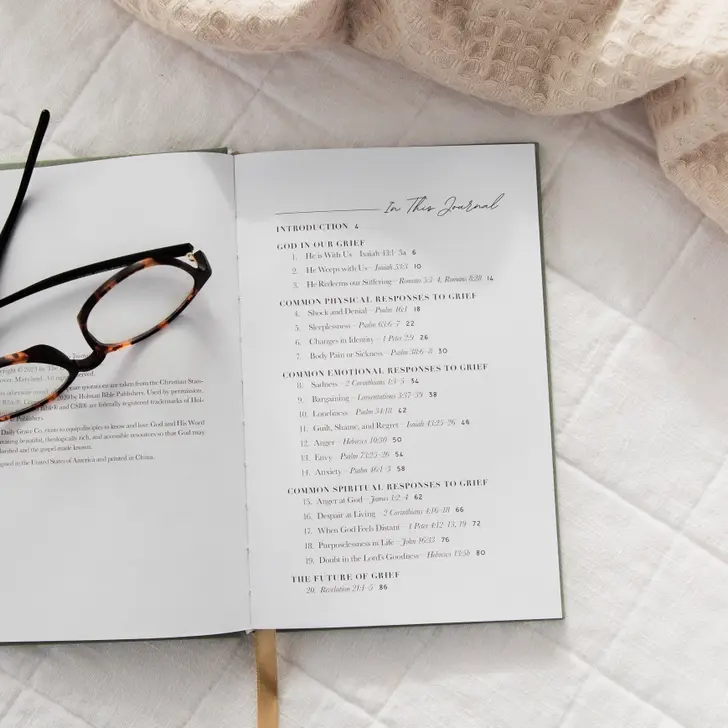 yright © 2023 by The
over, Maryland. All rights reserved.
otherwise noted, Scripture quotations are taken from the Christian Stan-
Bible®, 2020 by Holman Bible Publishers. Used by permission.
Bible® and CSB® are federally registered trademarks of Hol-
Publishers.
Daily Grace Co. exists to equip disciples to know and love God and His Word
beautiful, theologically rich, and accessible resources so that God may
and the gospel made known.
in the United States of America and printed in China.
In This Journal
INTRODUCTION 4
GOD IN OUR GRIEF
1. He is With Us – Isaiah 43:1–3a 6
2. He Weeps with Us – Isaiah 53:3 10
3. He Redeems our Suffering – Romans 5:3–4, Romans 8:28 14
COMMON PHYSICAL RESPONSES TO GRIEF
4. Shock and Denial – Psalm 46:1 18
5. Sleeplessness – Psalm 63:6–7 22
6. Changes in Identity – 1 Peter 2:9 26
7. Body Pain or Sickness – Psalm 38:6–8 30
COMMON EMOTIONAL RESPONSES TO GRIEF
8. Sadness – 2 Corinthians 1:3–5 34
9. Bargaining – Lamentations 3:37–39 38
10. Loneliness – Psalm 34:18 42
11. Guilt, Shame, and Regret – Isaiah 43:25–26 46
12. Anger – Hebrews 10:30 50
13. Envy – Psalm 73:25–26 54
14. Anxiety – Psalm 46:1–3 58
COMMON SPIRITUAL RESPONSES TO GRIEF
15. Anger at God – James 1:2–4 62
16. Despair at Living – 2 Corinthians 4:16–18 66
17. When God Feels Distant – 1 Peter 4:12–13, 19 72
18. Purposelessness in Life – John 16:33 76
19. Doubt in the Lord's Goodness – Hebrews 13:5b 80
THE FUTURE OF GRIEF
20. Revelation 21:1–5 86